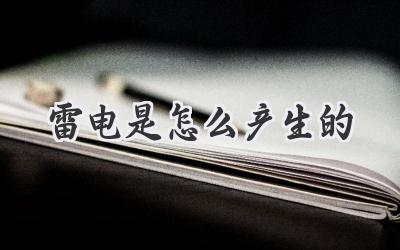 雷电是怎么产生的